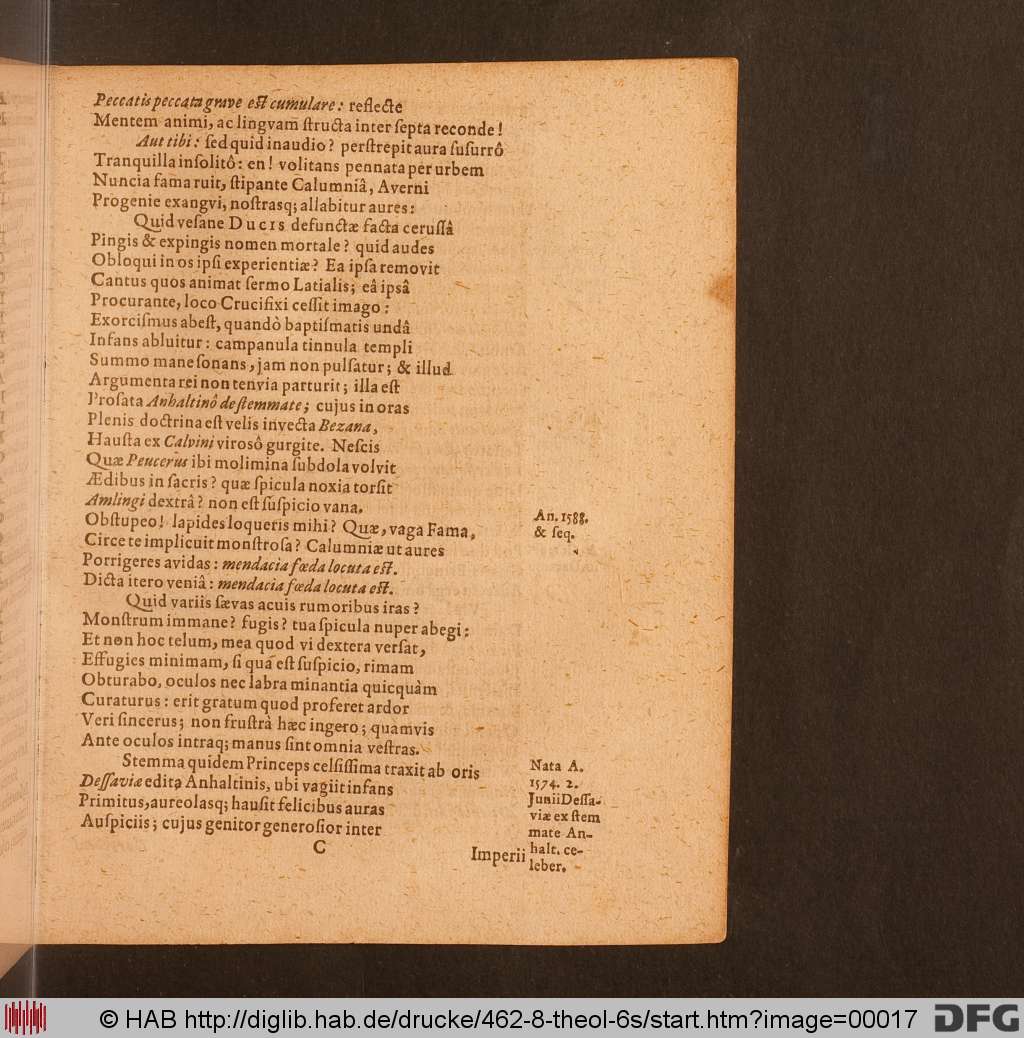 Peccatis peccata grave est cumulare: reflecte
Mentem animi, ac lingvam structa inter septa reconde!
Aut tibi: sed quid inaudio? perstrepit aura susurrô
Tranquilla insolitô: en! volitans pennata per urbem
Nuncia fama ruit, stipante Calumniâ, Averni
Progenie exangvi, nostrasq; allabitur aures:
Quid vesane Ducis defunctæ facta cerussâ
Pingis & expingis nomen mortale? quid audes
Obloqui in os ipsi experientiæ? Ea ipsa removit
Cantus quos animat sermo Latialis; eâ ipsâ
Procurante, loco Crucifixi cessit imago:
Exorcismus abest, quandò baptismatis undâ
Infans abluitur: campanula tinnula templi
Summo mane sonans, jam non pulsatur; & illud
Argumenta rei non tenvia parturit; illa est
Prosata Anhaltinô de stemmate; cujus in oras
Plenis doctrina est velis invecta Bezana,
Hausta ex Calvini virosô gurgite. Nescis
Quæ Peucerus ibi molimina subdola volvit
Ædibus in sacris? quæ spicula noxia torsit
Amlingi dextrâ? non est suspicio vana.
Obstupeo! lapides loqueris mihi? Quæ, vaga Fama,
An. 1588.
& seq.
Circe te implicuit monstrosa? Calumniæ ut aures
Porrigeres avidas: mendacia fœda locuta est.
Dicta itero veniâ: mendacia fœda locuta est.
Quid variis sævas acuis rumoribus iras?
Monstrum immane? fugis? tua spicula nuper abegi:
Et non hoc telum, mea quod vi dextera versat,
Effugies minimam, si qua est suspicio, rimam
Obturabo, oculos nec labra minantia quicquàm
Curaturus: erit gratum quod proferet ardor
Veri sincerus; non frustrà hæc ingero; quamvis
Ante oculos intraq; manus sint omnia vestras.
Stemma quidem Princeps celsissima traxit ab oris
Dessaviæ edita Anhaltinis, ubi vagiit infans
Primitus, aureolasq; hausit felicibus auras
Auspiciis; cujus genitor generosior inter
Nata A.
1574. 2.
Junii Dessa-
viæ ex stem
mate An-
halt. ce-
leber.
C
Imperii
© HAB http://diglib.hab.de/drucke/462-8-theol-6s/start.htm?image=00017
DFG